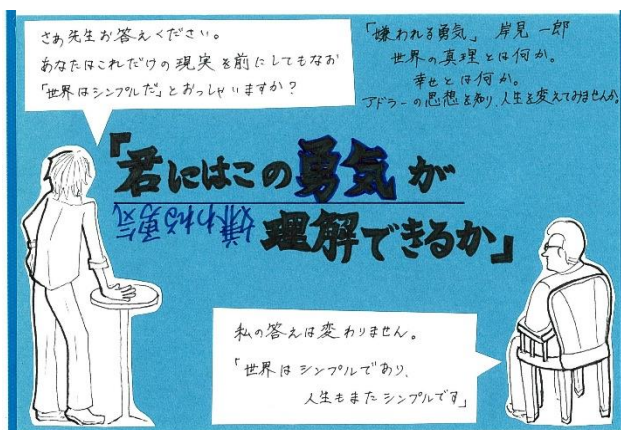 さあ先生お答えください。
あなたはこれだけの現実を前にしてもなお
「世界はシンプルだ」とおっしゃいますか？
「嫌われる勇気」 岸見 一郎
世界の真理とは何か。
幸せとは何か。
アドラーの思想を知り、人生を変えてみませんか。
「君にはこの勇気が
嫌われる勇気
理解できるか」
私の答えは変わりません。
「世界はシンプルであり、
人生もまたシンプルです」